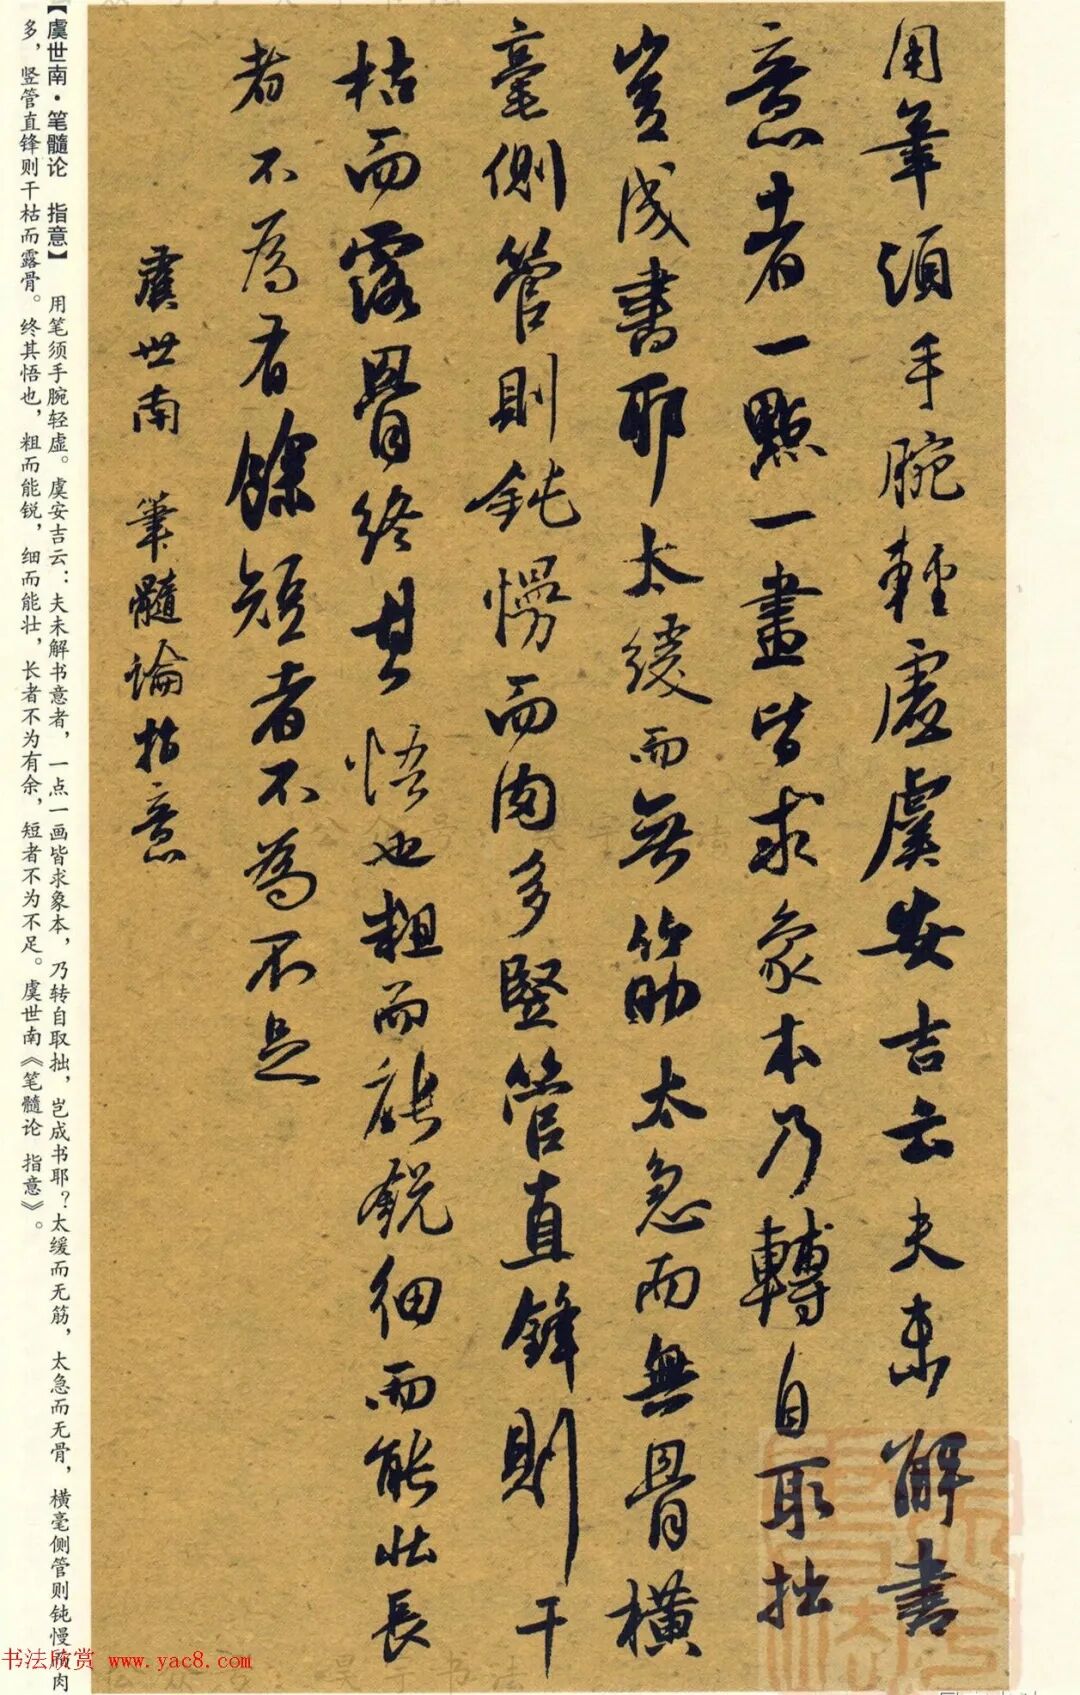 用筆須手腕輕虛虞安吉云夫未解書
意者一點一畫皆求象本乃轉自取拙
豈成書耶太緩而無筋太急而無骨橫
毫側管則鈍慢而肉多竪管直鋒則干
枯而露骨終其悟也粗而能銳細而能壯長
者不為有餘短者不為不足
虞世南 筆髓論指意
【虞世南·笔髓论 指意】 用笔须手腕轻虚。虞安吉云：夫未解书意者，一点一画皆求象本，乃转自取拙，岂成书耶？太缓而无筋，太急而无骨，横毫侧管则钝慢而肉
多，竖管直锋则干枯而露骨。终其悟也，粗而能锐，细而能壮，长者不为有余，短者不为不足。虞世南《笔髓论 指意》。
书法欣赏 www.yac8.com